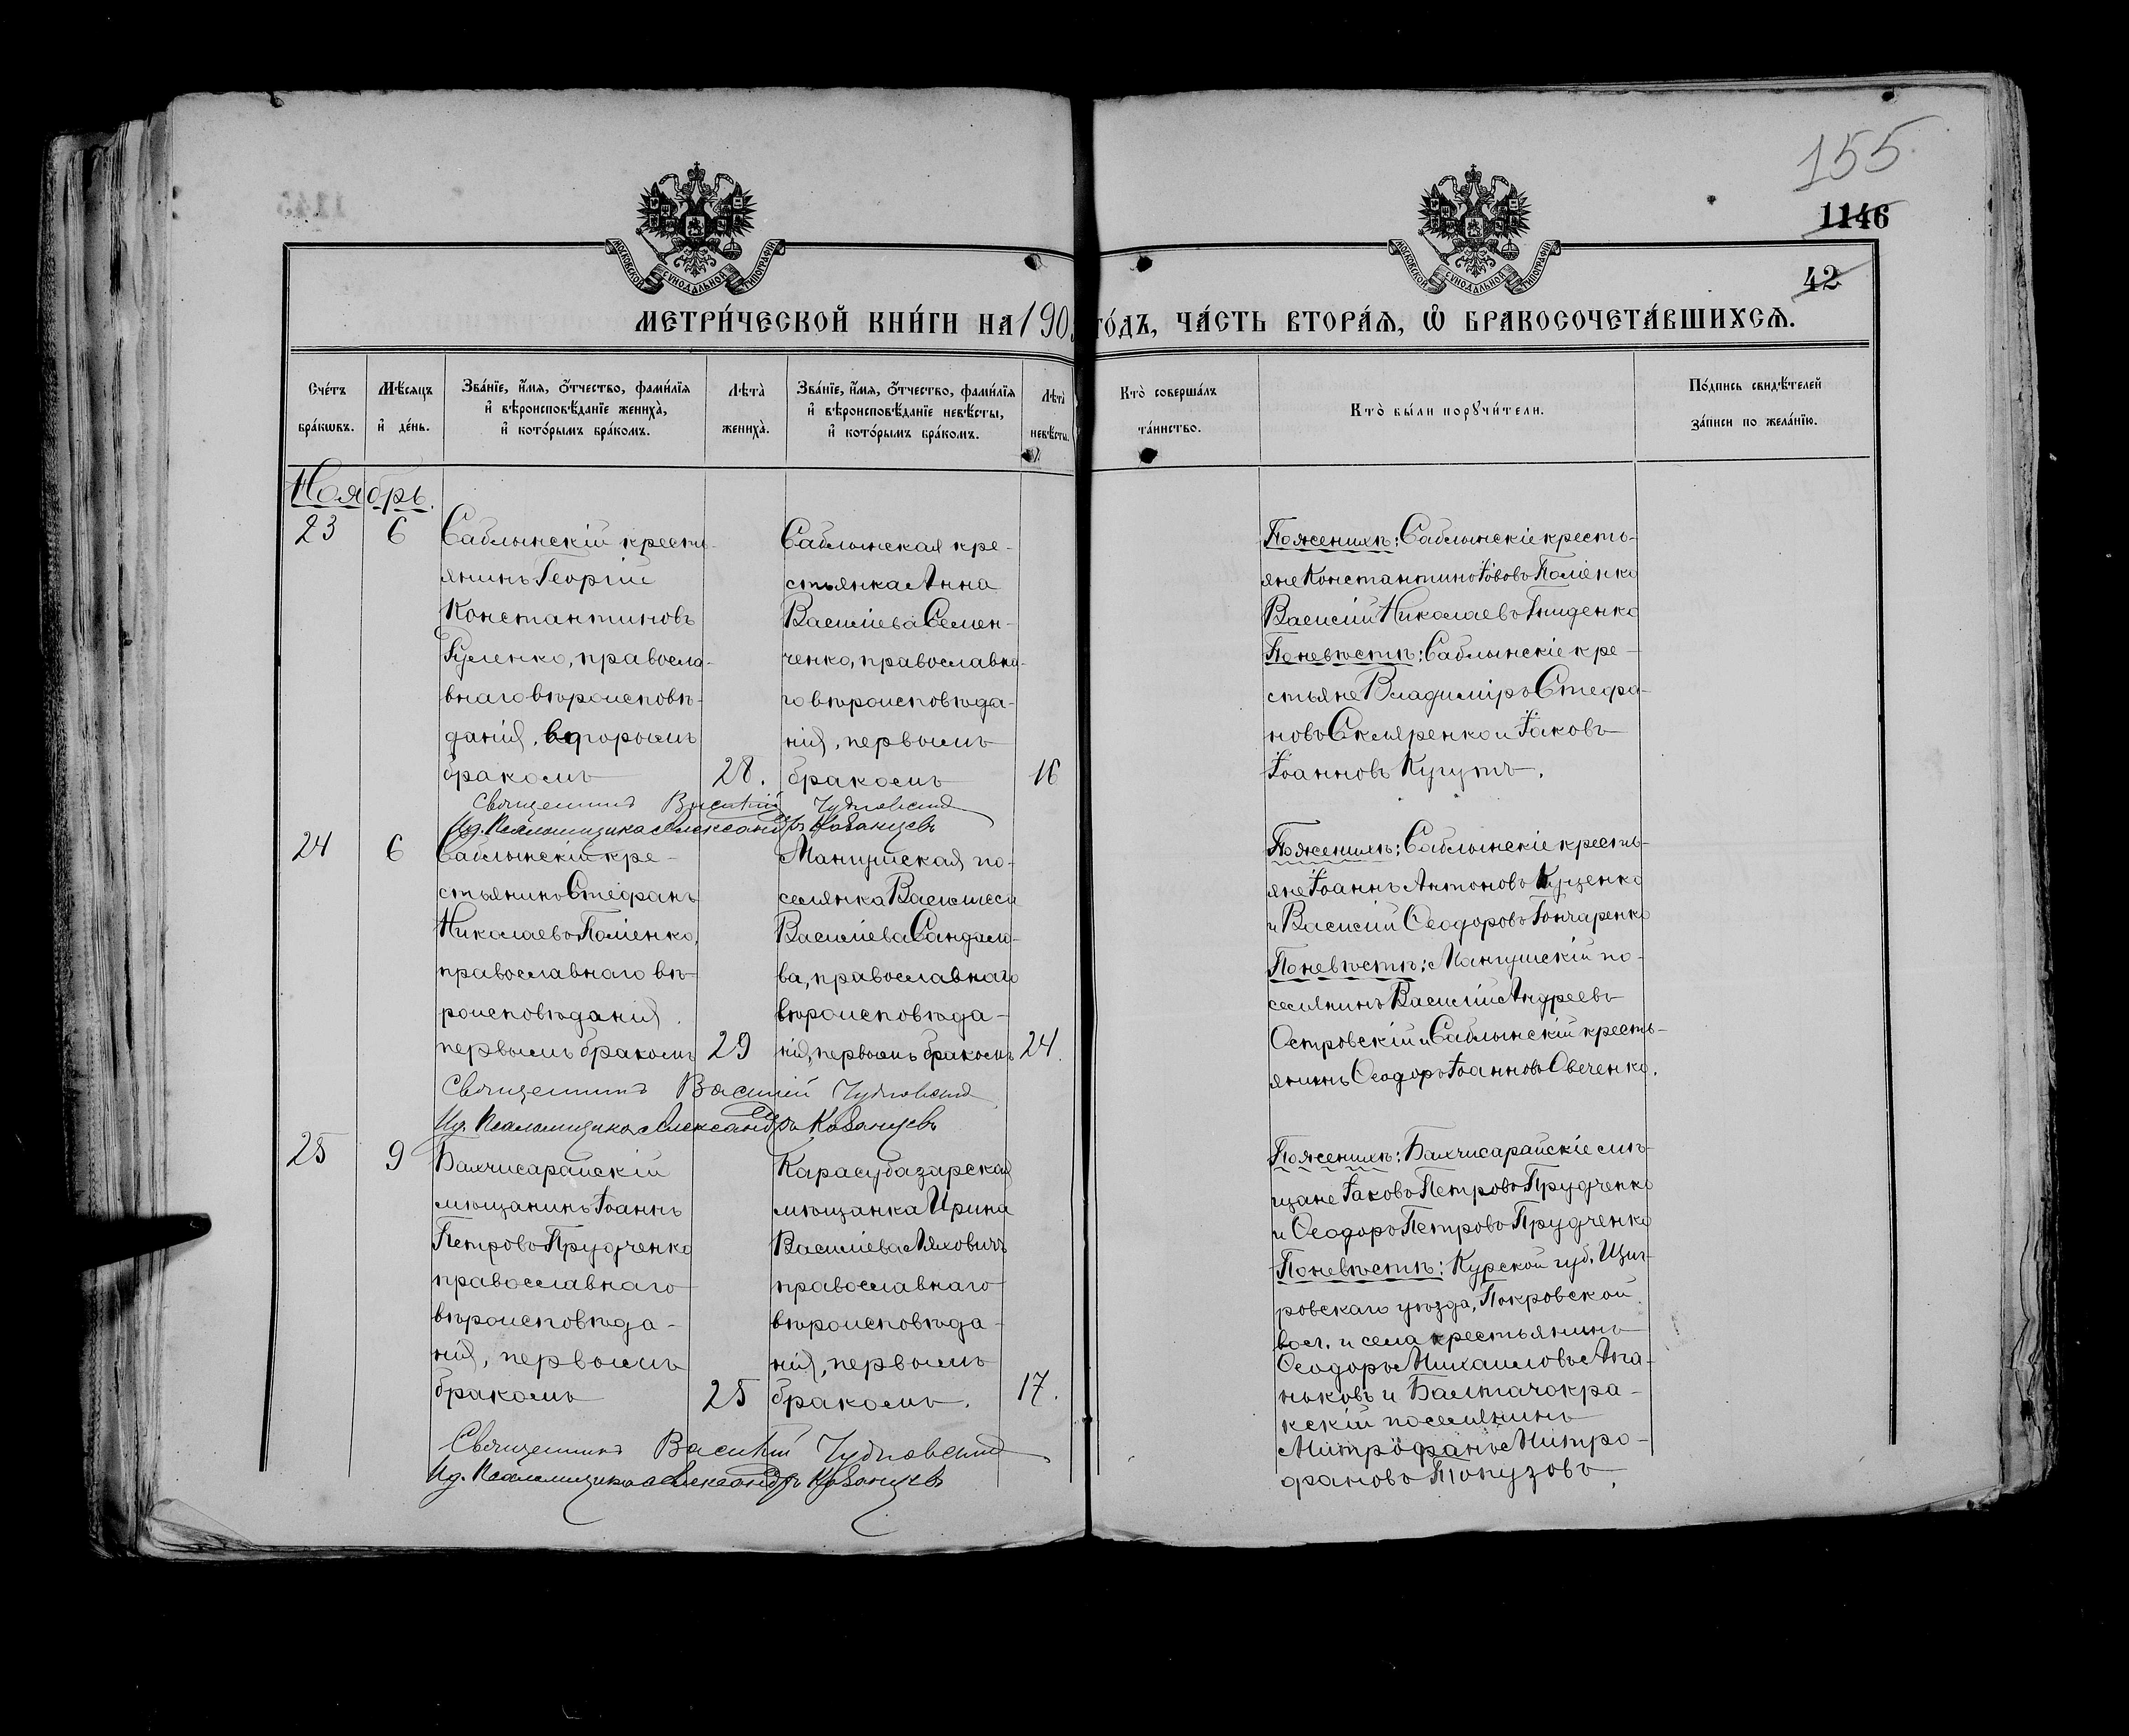 155
1146
42
МОСКОВСКОЙ СѴНОДАЛЬНОЙ ТИПОГРАФІИ
МОСКОВСКОЙ СѴНОДАЛЬНОЙ ТИПОГРАФІИ
МЕТРИ́ЧЕСКОЙ КНИ́ГИ НА 190
ГО́ДЪ, ЧА́СТЬ ВТОРА́Ѧ, Ѽ БРАКОСОЧЕТА́ВШИХСѦ.
Сче́тъ
бра́кѡвъ.
Мѣ́сяцъ
и҆ де́нь.
Зва́нїе, и҆́мя, ѻ҆́тчество, фами́лїя
и҆ вѣроисповѣ́данїе жениха̀,
и҆ кото́рымъ бра́комъ.
Лѣта̀
жениха̀.
Зва́нїе, и҆́мя, ѻ҆́тчество, фами́лїя
и҆ вѣроисповѣ́данїе невѣ́сты,
и҆ кото́рымъ бра́комъ.
Лѣта̀
невѣ́сты.
Кто̀ соверша́лъ
та́инство.
Кто̀ бы́ли порꙋчи́тели.
По́дпись свидѣ́телей
за́писи по жела́нїю.
Ноябрь.
23
6
Саблынскій кресть-
янинъ Георгій
Константиновъ
Гуленко, правосла-
внаго вѣроисповѣ-
данія, вторымъ
бракомъ
28.
Саблынская кре-
стьянка Анна
Васильева Семен-
ченко, православна-
го вѣроисповѣда-
нія, первымъ
бракомъ
16
По женихѣ: Саблынскіе кресть-
яне Константинъ Іововъ Поліенко
Василій Николаевъ Гниденко
По невѣстѣ: Саблынскіе кре-
стьяне Владиміръ Стефа-
новъ Скляренко и Іаковъ
Іоанновъ Кугутъ.
Священникъ Василій Чудновскій
И.д. Псаломщика Александръ Казанцевъ
24
6
Саблынскій кре-
стьянинъ Стефанъ
Николаевъ Поліенко,
православнаго вѣ-
роисповѣданія.
первымъ бракомъ
29
Мангушская по-
селянка Василиса
Васильева Сандало-
ва, православнаго
вѣроисповѣда-
нія, первымъ бракомъ
24.
По женихѣ: Саблынскіе кресть-
яне Іоаннъ Антоновъ Куценко
и Василій Ѳеодоровъ Гончаренко
По невѣстѣ: Мангушскій по-
селянинъ Василій Андреевъ
Островскій и Саблынскій кресть-
янинъ Ѳеодоръ Іоанновъ Овеченко.
Священникъ Василій Чудновскій
И.д. Псаломщика Александръ Казанцевъ
25
9
Бахчисарайскій
мѣщанинъ Іоаннъ
Петровъ Прудченко
православнаго
вѣроисповѣда-
нія, первымъ
бракомъ
25
Карасубазарская
мѣщанка Ирина
Васильева Ляховичъ
православнаго
вѣроисповѣда-
нія, первымъ
бракомъ.
17.
По женихѣ: Бахчисарайскіе мѣ-
щане Іаковъ Петровъ Прудченко
и Ѳеодоръ Петровъ Прудченко
По невѣстѣ: Курской губ. Щиг-
ровскаго уѣзда, Покровской
вол. и села крестьянинъ
Ѳеодоръ Михаиловъ Ага-
ньковъ и Балтачокра-
кскій поселянинъ
Митрофанъ Митро-
фановъ Топузовъ.
Священникъ Василій Чудновскій
И.д. Псаломщика Александръ Казанцевъ